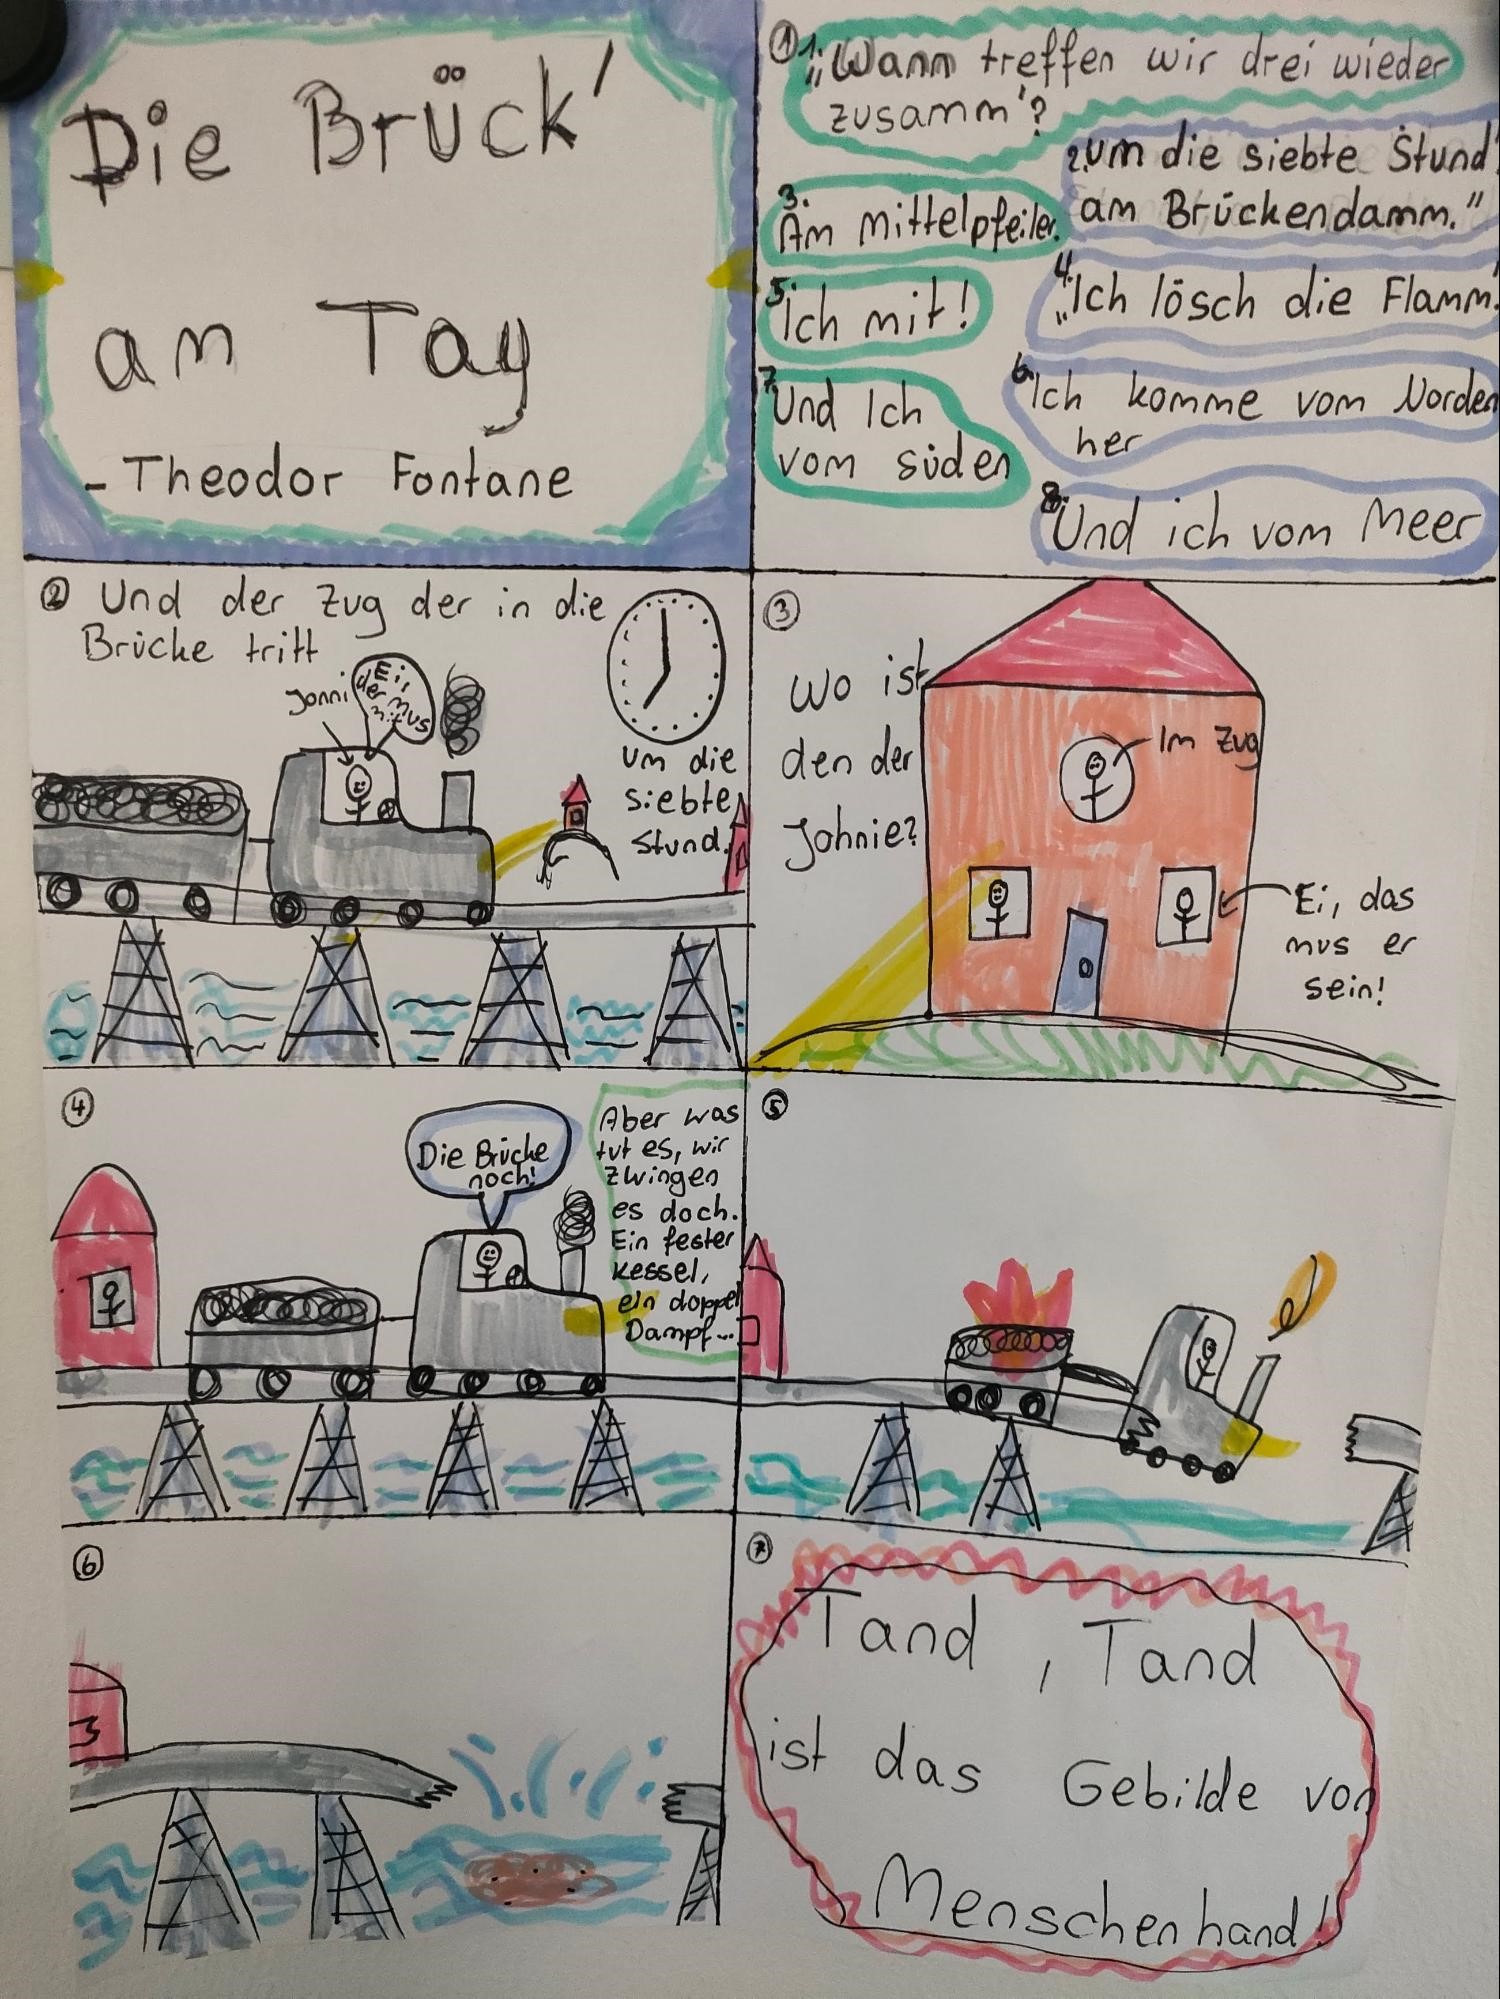 Die Brück'
am Tay
- Theodor Fontane
① 1. „Wann treffen wir drei wieder
zusamm'?
2. um die siebte Stund'
am Brückendamm."
3. Am Mittelpfeiler.
4. „Ich lösch die Flamm'
5. Ich mit!
6. Ich komme vom Norden
her
7. Und Ich
vom süden
8. Und ich vom Meer
② Und der Zug der in die
Brücke tritt
Jonni
Ei,
der mus
mit
um die
siebte
Stund.
③
Wo ist
den der
Johnie?
Im Zug
Ei, das
mus er
sein!
④
Die Brücke
noch!
Aber was
tut es, wir
zwingen
es doch.
Ein fester
Kessel,
ein doppel
Dampf...
⑤
⑥
⑦
Tand, Tand
ist das Gebilde von
Menschenhand!